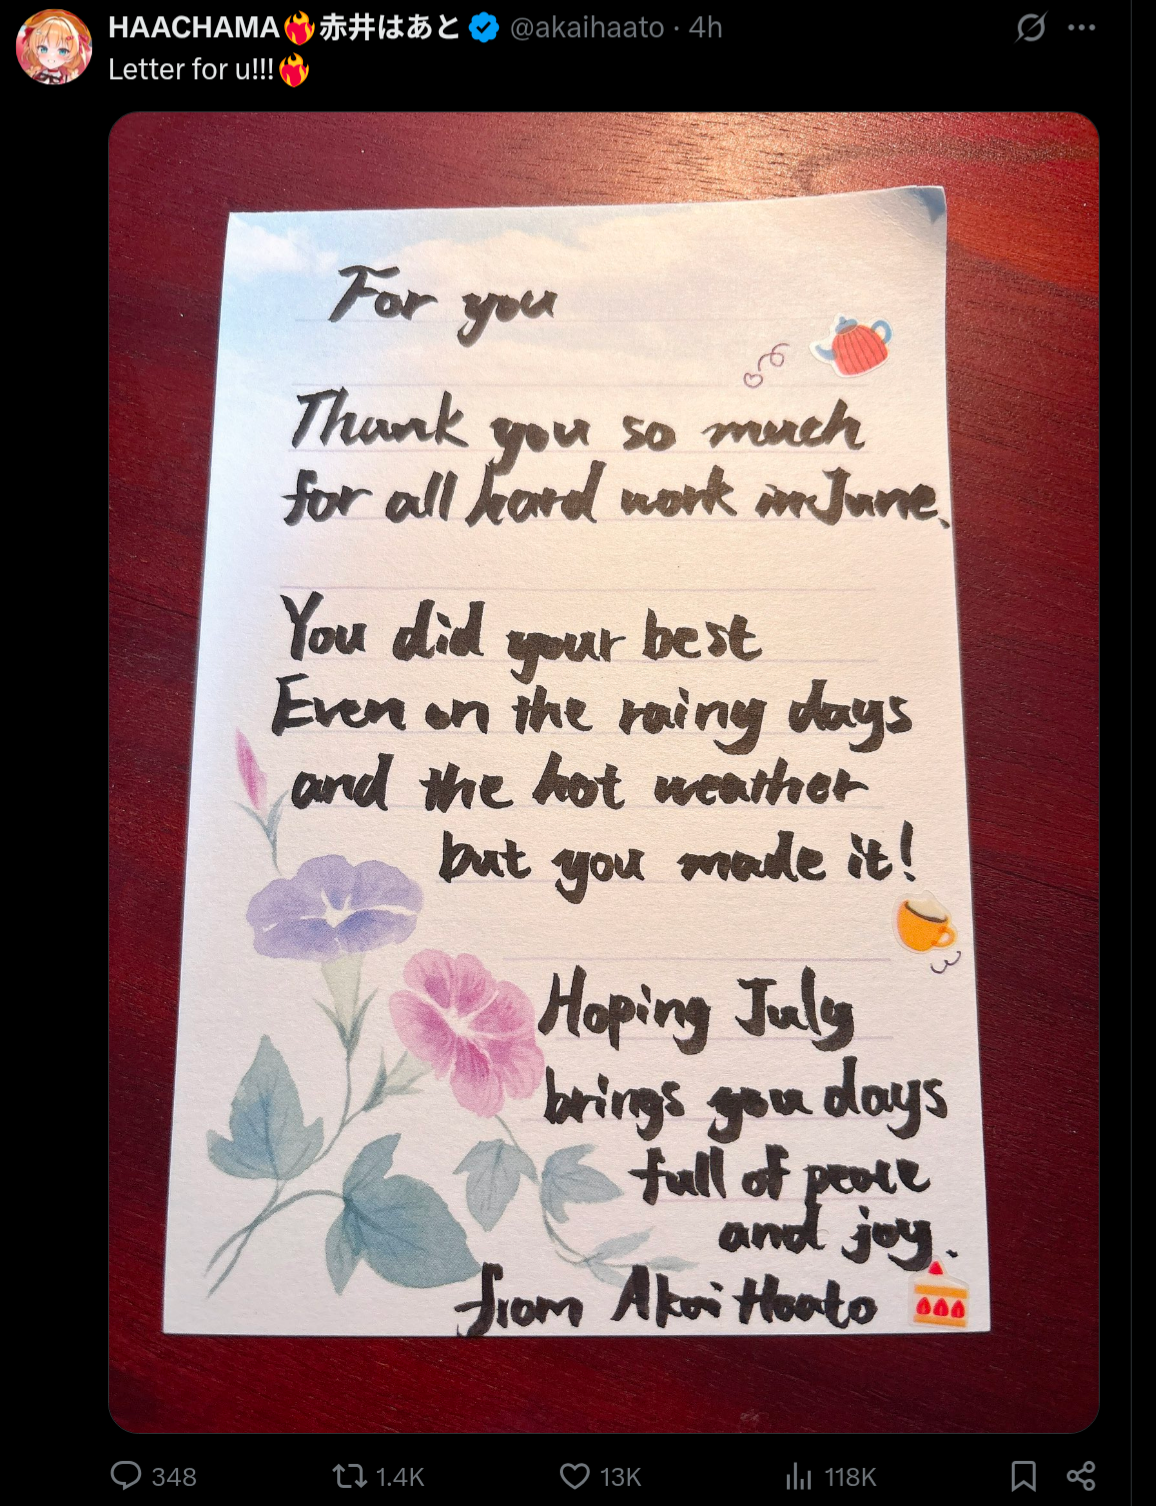 HAACHAMA❤️‍🔥赤井はあと @akaihaato · 4h
Letter for u!!!❤️‍🔥
For you
Thank you so much
for all hard work in June.
You did your best
Even on the rainy days
and the hot weather
but you made it!
Hoping July
brings you days
full of peace
and joy.
from Akai Haato
348 1.4K 13K 118K